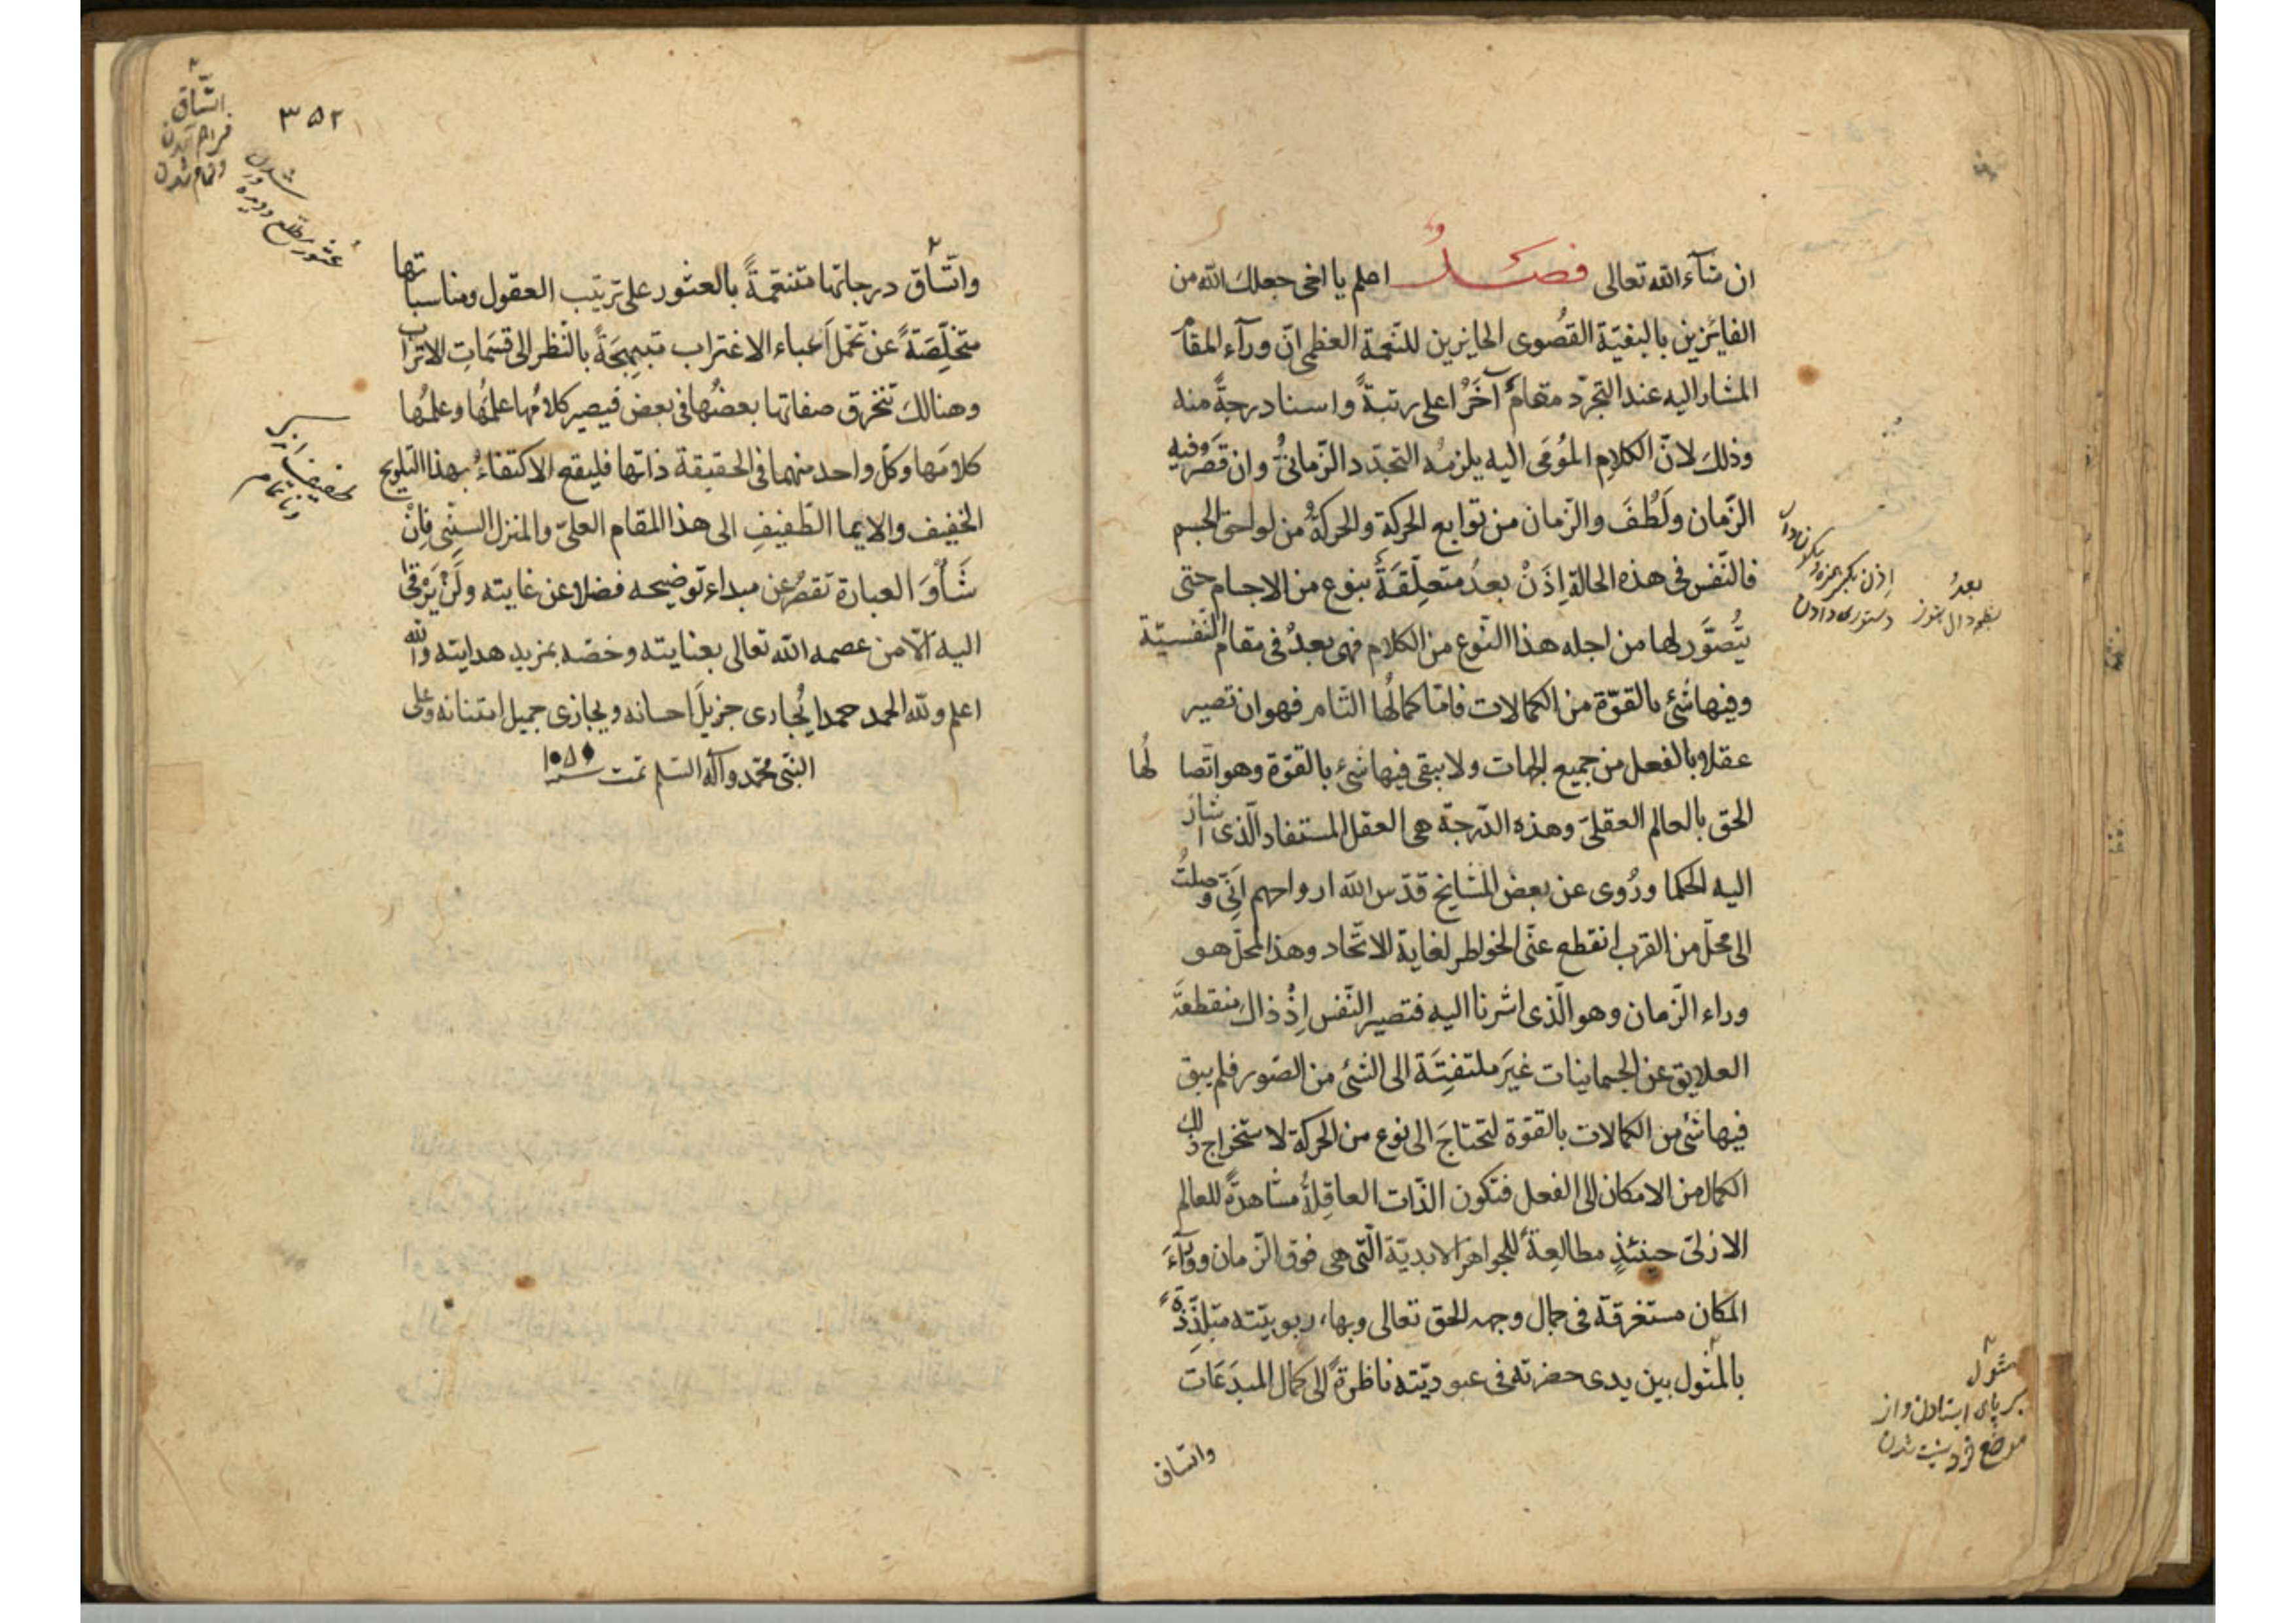 ان شآء الله تعالى فصل اعلم يا اخى جعلك الله من
الفايزين بالبغية القصوى الحايزين للنعمة العظمى انّ ورآء المقام
المشار اليه عند التجرّد مقامٌ آخَرُ اعلى رتبةً واسنا درجةً منه
وذلك لانّ الكلام المُومَى اليه يلزمه التجدّد الزّمانىُّ وان قصَر فيه
الزّمان ولَطُفَ والزّمان من توابع الحركة والحركةُ من لواحق الجسم
فالنّفس فى هذه الحالة اِذَنْ بعدُ متعلّقةً بنوع من الاجسام حتى
يُتُصوَّر لها من اجله هذا النّوع من الكلام فهى بعدُ فى مقام النفسيّة
وفيها شئ بالقوّة من الكمالات فامّا كمالُها التّام فهو ان تصير
عقلا وبالفعل من جميع الجهات ولا يبقى فيها شئ بالقوّة وهو اتّصالُها
الحق بالعالم العقلىّ وهذه الدّرجة هى العقل المستفاد الّذى اشار
اليه الحكما ورُوى عن بعض المشايخ قدّس الله ارواحهم اَنّى وصلتُ
الى محلّ من القرب انقطع عنّى الخواطر لغاية الاتّحاد وهذا المحلّ هو
وراء الزّمان وهو الّذى اشرنا اليه فتصير النّفس اِذْ ذاك منقطعة
العلايق عن الجسمانيات غيرَ ملتفتة الى الشئ من الصّور فلم يبق
فيها شئ من الكمالات بالقوّة لتحتاجَ الى نوع من الحركة لاستخراج ذلك
الكمال من الامكان الى الفعل فتكون الذّات العاقلةُ مشاهدةً للعالم
الازلىّ حينئذٍ مطالعةً للجواهر الابديّة الّتى هى فوق الزّمان وورآءَ
المكان مستغرقة فى جمال وجه الحق تعالى وبهاء ربوبيّته متلذّذةً
بالمثول بين يدى حضرته فى عبوديّته ناظرةً الى كمال المبدَعَات
واتساق
اذن بكسر همزه وسكون
دستورى دادن
بعدُ
مثول
بر پاى ايستادن و از
موضع خود شدن
٣٥٢
اتّساق
فراهم آمدن
وتمام شدن
عُثور مطلع
شدن
واتّساق درجاتها متنعّمةً بالعثور على ترتيب العقول ومناسباتها
متخلّصةً عن تحمّل اَعباء الاغتراب مبتهجةً بالنّظر الى قسَمات الاتراب
وهنالك تنخرق صفاتها بعضُها فى بعض فيصير كلامُها علمُها وعلمُها
كلامَها وكلّ واحد منهما فى الحقيقة ذاتها فليقع الاكتفاءُ بهذا التلويح
الخفيف والايما الطّفيفِ الى هذا المقام العلىّ والمنزل السنّى فاِنّ
شَأْوَ العبارة تقصُر عن مبداء توضيحه فضلا عن غايته ولَنْ يَرْقىٰ
اليه الّا من عصمه الله تعالى بعنايته وخصّه بمزيد هدايته والله
اعلم ولله الحمد حمدا يُجارى جزيلَ احسانه ويجازى جميل امتنانه وعلى
النبّى محمّد وآله السّلم تمت سنه ١٠٥٥